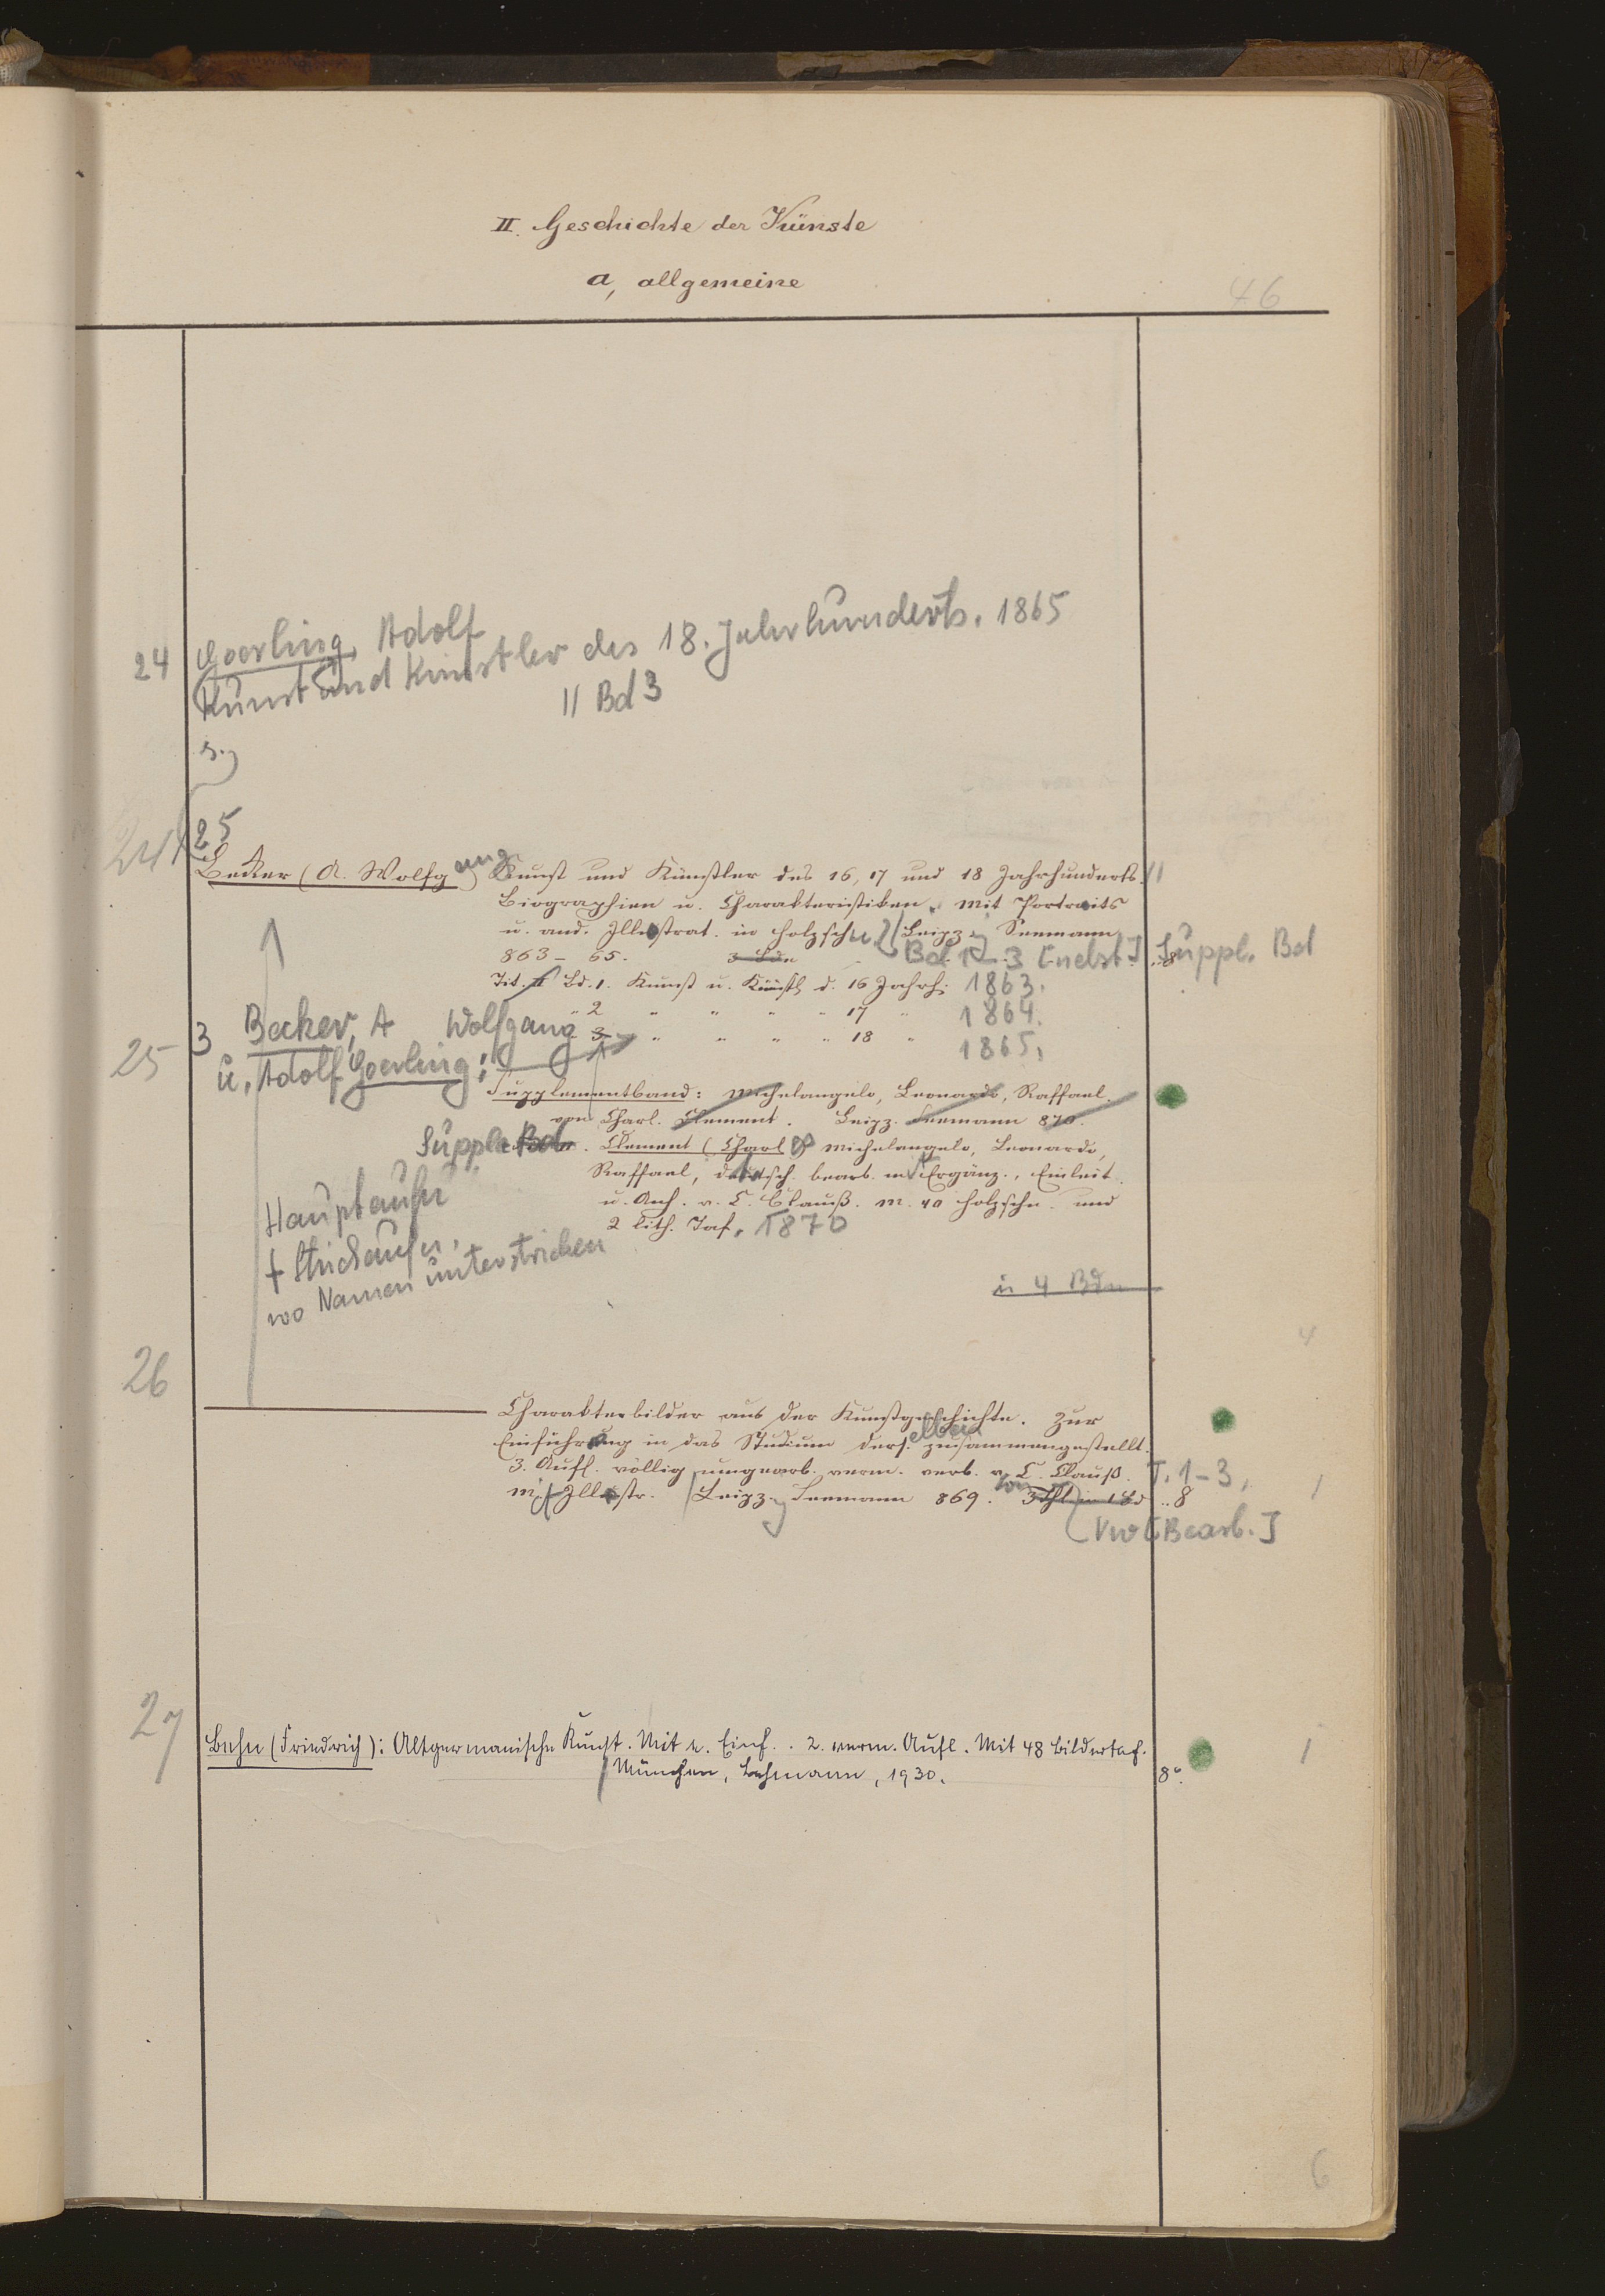 II. Geschichte der Künste
a, allgemeine
46
24 Goerling, Adolf
Kunst und Künstler des 18. Jahrhunderts. 1865
|| Bd 3
s.
24
25
Becker (A. Wolfgang) Kunst und Künstler des 16, 17 und 18 Jahrhunderts. ||
Biographien u. Charakteristiken. Mit Portraits
u. and. Illustrat. in Holzschn. Leipzig Seemann
863–65. 3 Bde Bd. 1–3 [nebst] Suppl. Bd 8
Tit. Bd. 1. Kunst u. Künstl. d. 16 Jahrh. 1863.
" 2 " " " " 17 " 1864.
3 " " " " 18 " 1865.
25 3 Becker, A Wolfgang
u. Adolf Goerling:
Supplementband: Michelangelo, Leonardo, Raffael.
von Charl. Clement. Leipz. Seemann 870.
Suppl. Bd. Clement (Charl Michelangelo, Leonardo,
Raffael, deutsch bearb. m. Ergänz., Einleit.
u. Anh. v. C. Clauß. M. 40 Holzschn. und
2 lith. Taf. 1870
Hauptaufn
+ Stichaufn.
wo Namen unterstrichen
in 4 Bdn
4
26
Charakterbilder aus der Kunstgeschichte. Zur
Einführung in das Studium derselben zusammengestellt.
3. Aufl. völlig umgearb. verm. verb. v. C. Clauß. T. 1–3,
mit Illustr. Leipzig Seemann 869. 3 Thl. in 1 Bd .. 8 1
Vw [Bearb.]
27
Behn (Friedrich): Altgermanische Kunst. Mit e. Einf. . 2. verm. Aufl. Mit 48 Bildertaf. 1
München, Lehmann, 1930. 8°.
6